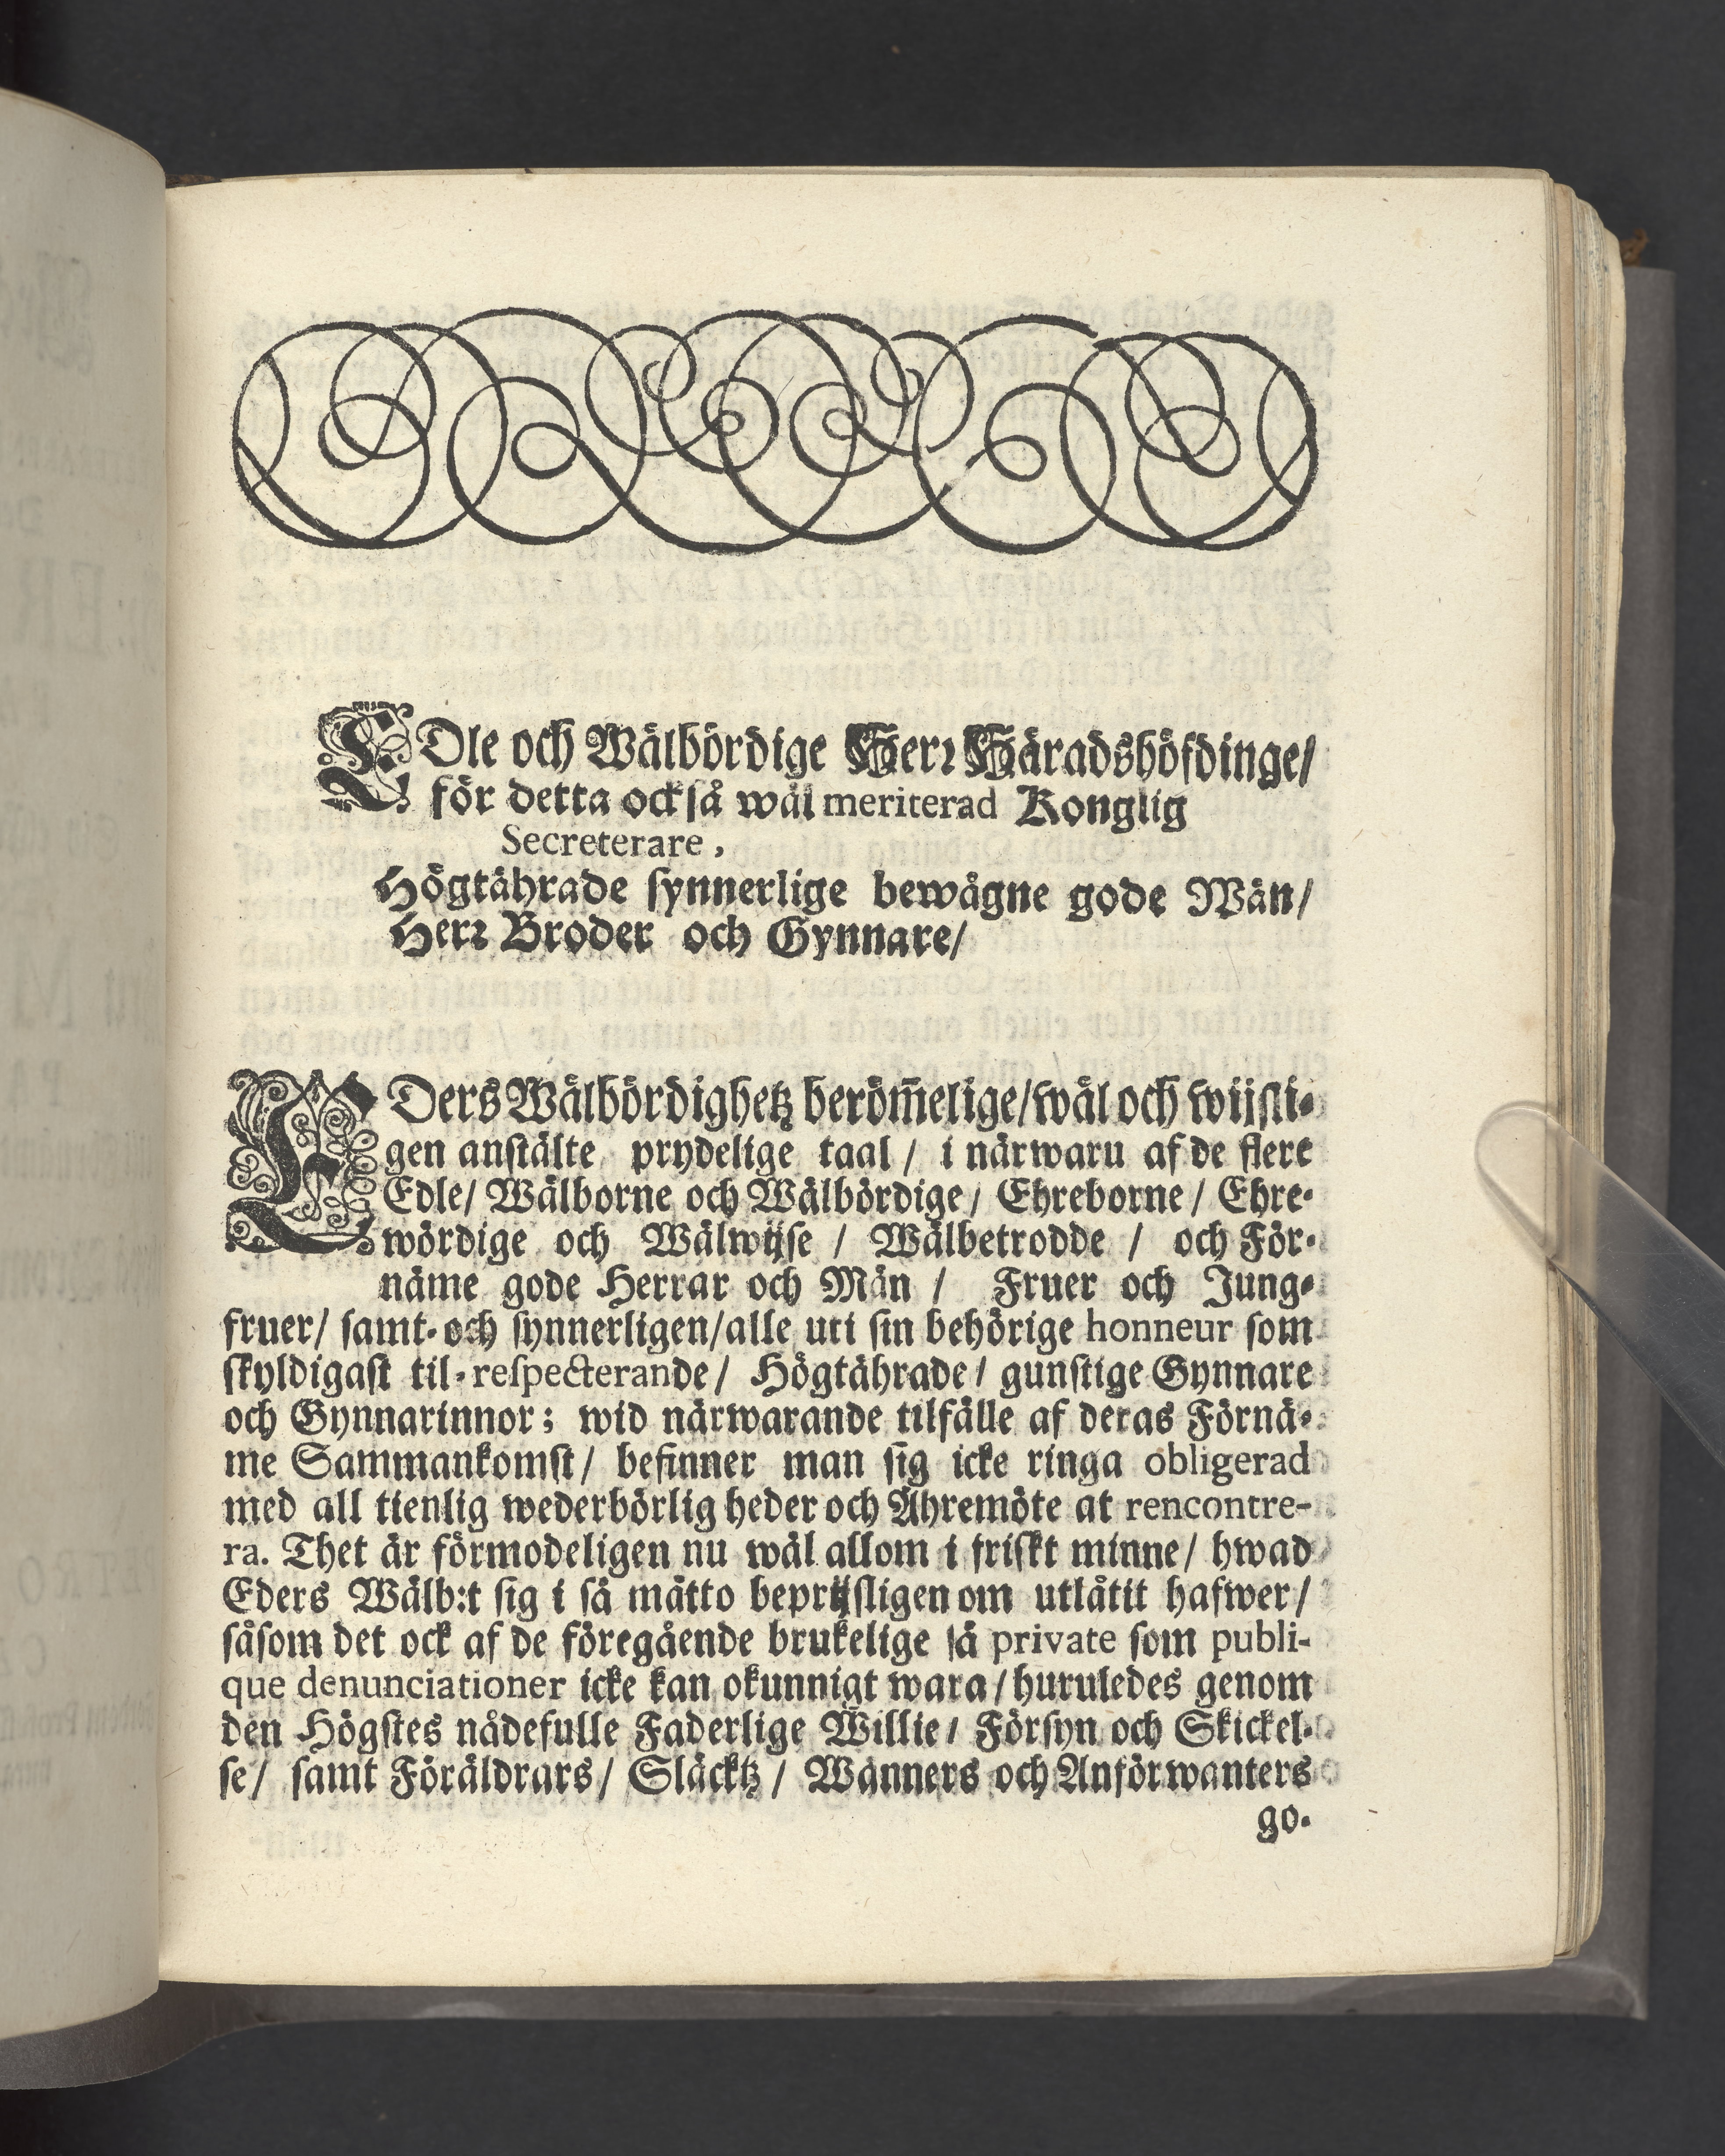 EDle och Wälbördige Herr Häradshöfdinge/
för detta också wäl meriterad Konglig
Secreterare,
Högtährade synnerlige bewågne gode Wän/
Herr Broder och Gynnare/
EDers Wälbördighetz beröm̃elige/wäl och wijsli-
gen anstälte prydelige taal / i närwaru af de flere
Edle/ Wälborne och Wälbördige/ Ehreborne/ Ehre-
wördige och Wälwijse / Wälbetrodde / och För-
näme gode Herrar och Män / Fruer och Jung-
fruer/ samt- och synnerligen/alle uti sin behörige honneur som
skyldigast til-respecterande/ Högtährade/ gunstige Gynnare
och Gynnarinnor; wid närwarande tilfälle af deras Förnä-
me Sammankomst/ befinner man sig icke ringa obligerad
med all tienlig wederbörlig heder och Ähremöte at rencontre-
ra. Thet är förmodeligen nu wäl allom i friskt minne/ hwad
Eders Wälb:t sig i så måtto beprijsligen om utlåtit hafwer/
såsom det ock af de föregående brukelige så private som publi-
que denunciationer icke kan okunnigt wara/huruledes genom
den Högstes nådefulle Faderlige Willie/ Försyn och Skickel-
se/ samt Föräldrars/ Släcktz/ Wänners och Anförwanters
go-